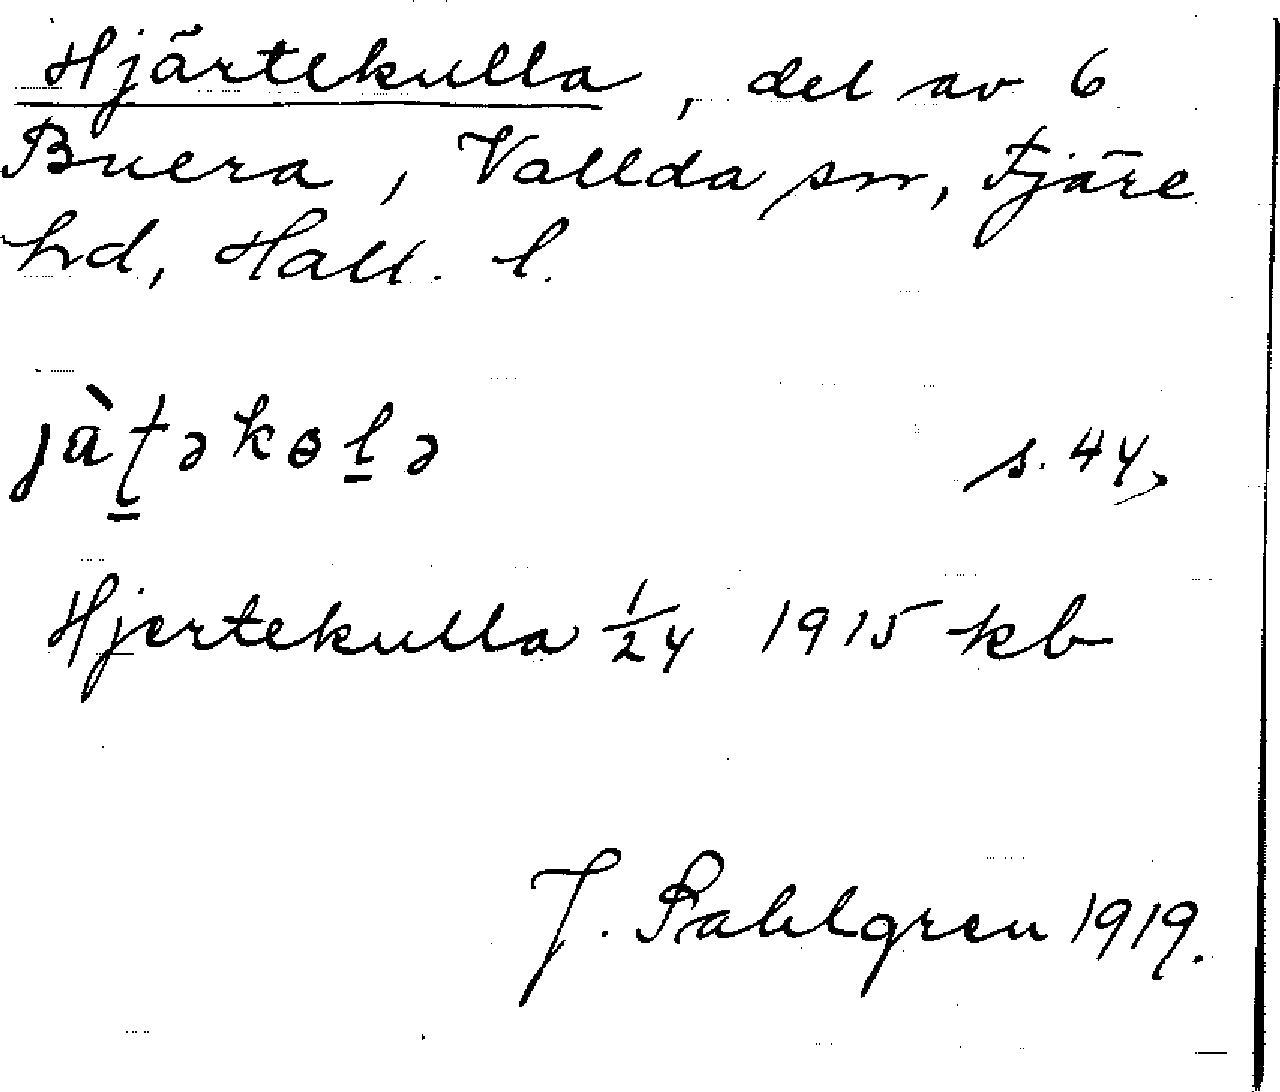 Hjärtekulla, del av 6
Buera, Vallda sn, Fjäre
hd, Hall. l.
jàʈəkɵlə s. 44,
Hjertekulla 1/24 1915 kb
J. Sahlgren 1919.